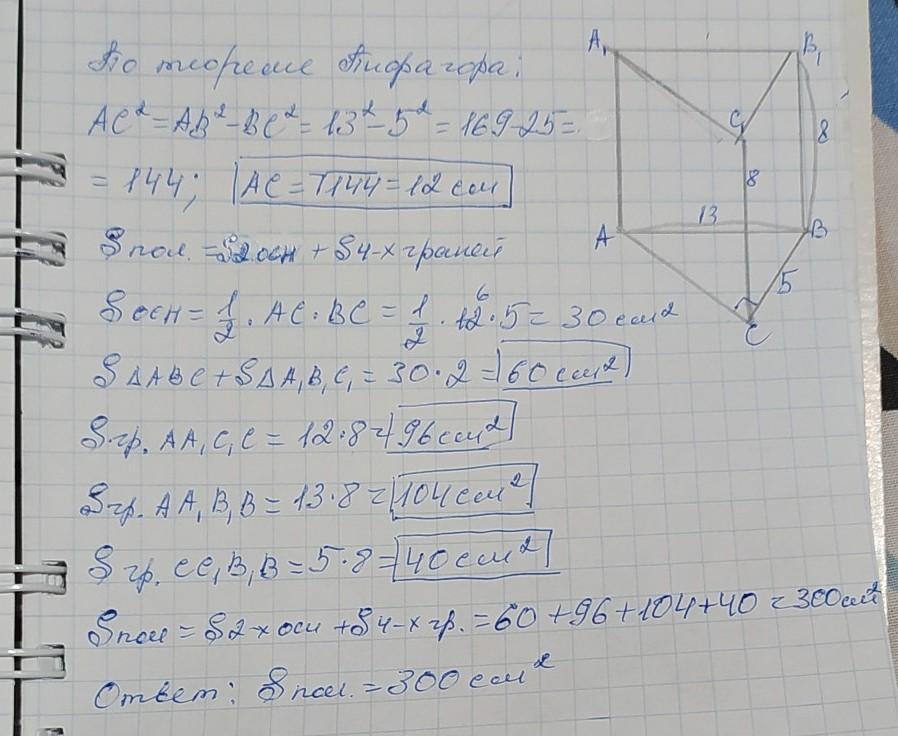 По теореме Пифагора:
AC² = AB² - BC² = 13² - 5² = 169-25 =
= 144; AC = √144 = 12 см
Sпол. = S2осн + S4-х граней
Sосн = 1/2 · AC · BC = 1/2 · 12 · 5 = 30 см²
6
SΔABC + SΔA₁B₁C₁ = 30 · 2 = 60 см²
Sгр. AA₁C₁C = 12·8 = 96 см²
Sгр. AA₁B₁B = 13·8 = 104 см²
Sгр. CC₁B₁B = 5·8 = 40 см²
Sпол = S2х осн + S4-х гр. = 60 + 96 + 104 + 40 = 300 см²
Ответ: Sпол. = 300 см²
A₁
B₁
C₁
8
8
13
A
B
5
C